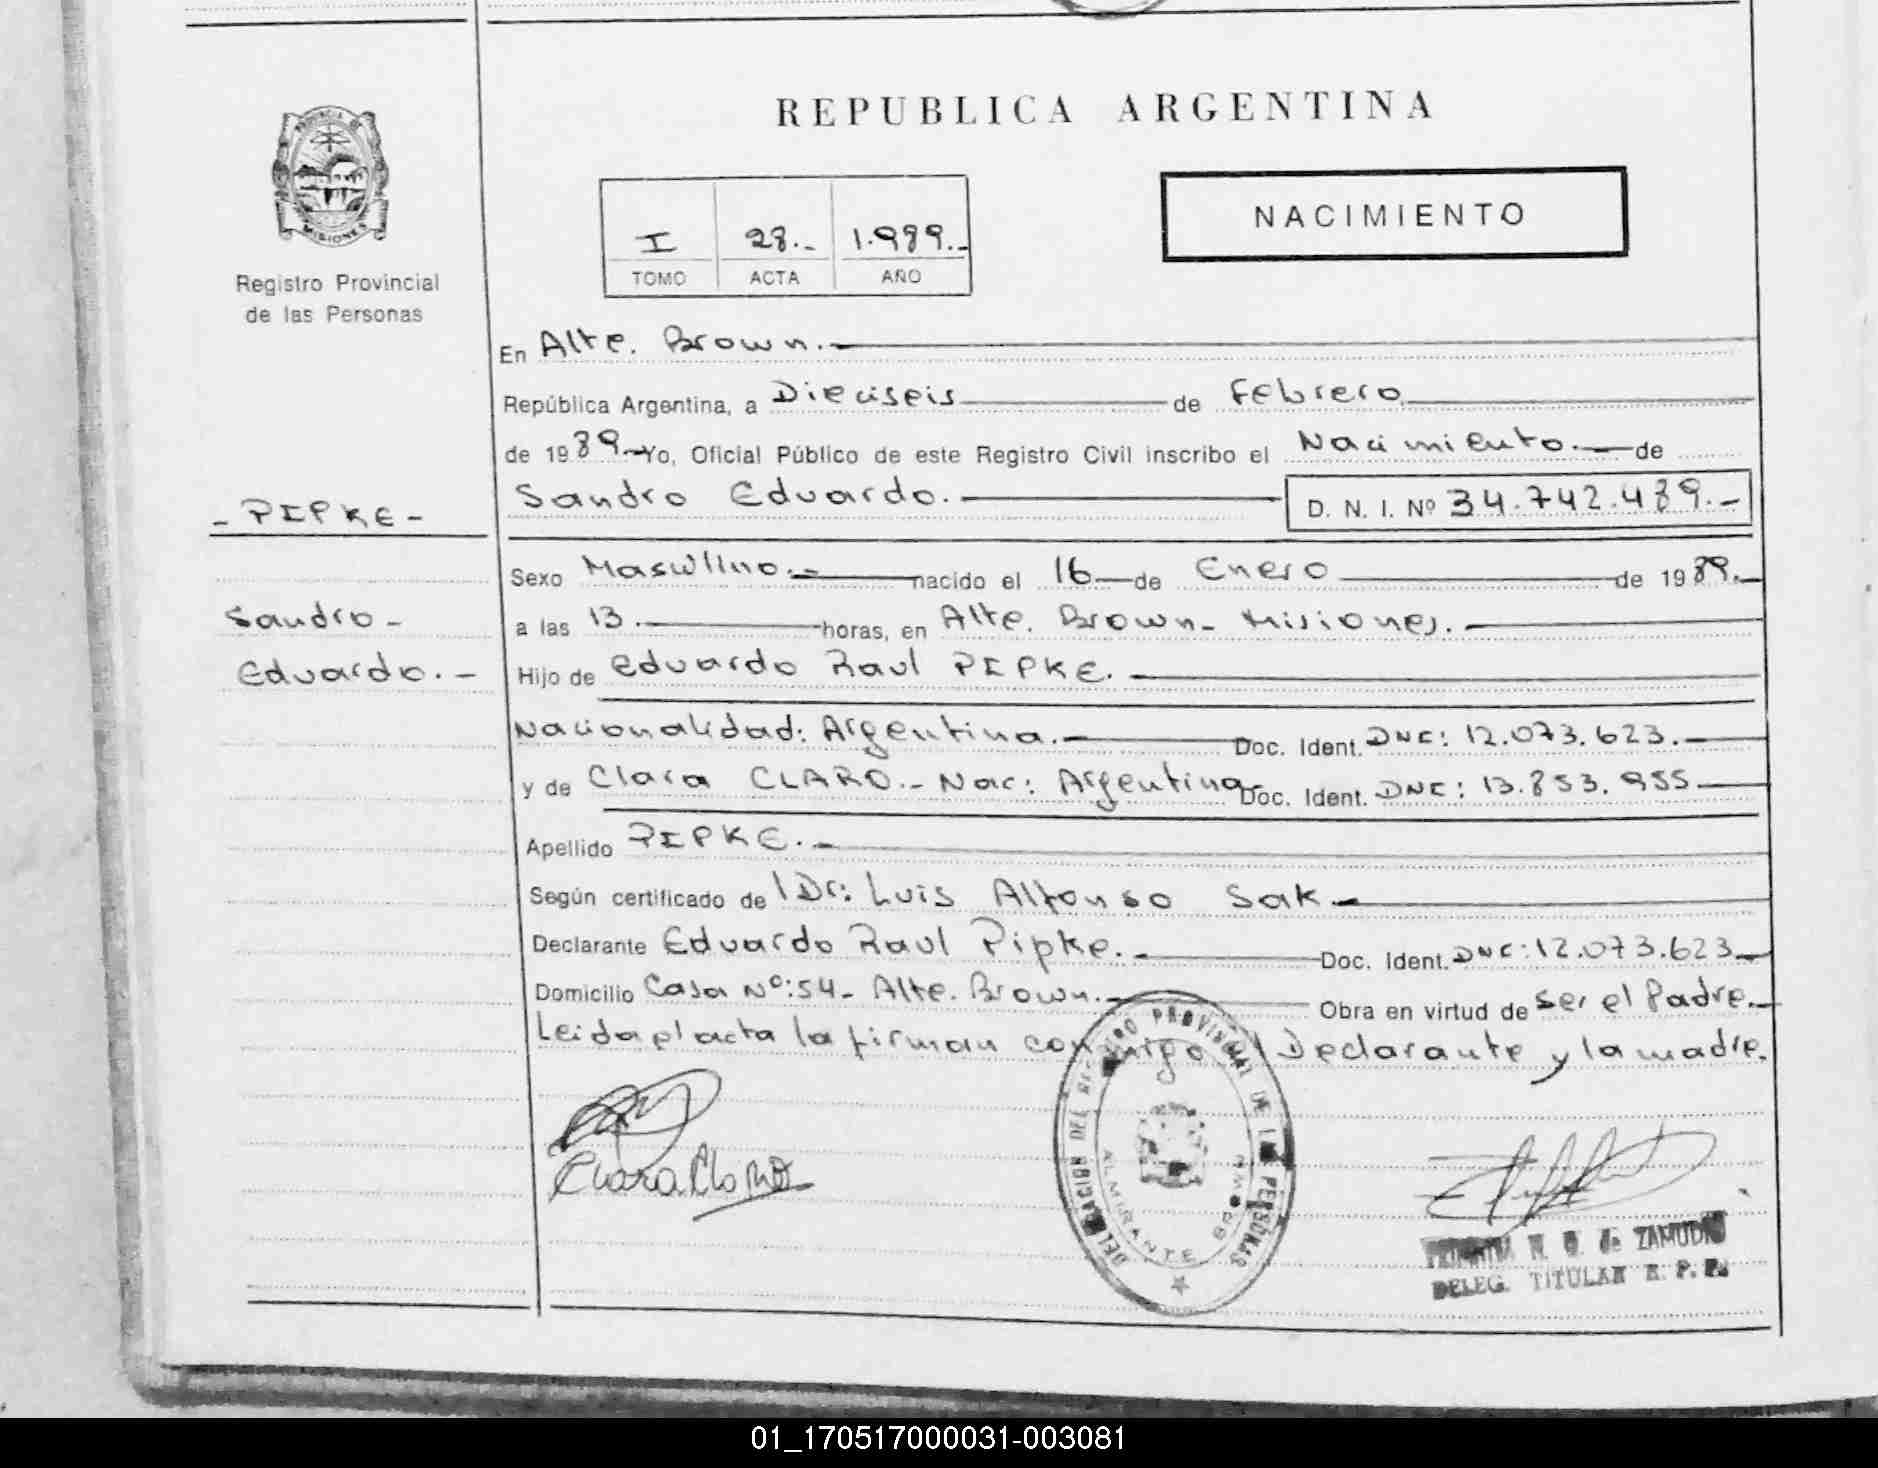 REPUBLICA ARGENTINA
PROVINCIA DE
MISIONES
Registro Provincial
de las Personas
I
28.-
1.989.-
TOMO
ACTA
AÑO
NACIMIENTO
En Alte. Brown.
República Argentina, a Dieciseis de Febrero
de 1989.- Yo, Oficial Público de este Registro Civil inscribo el Nacimiento.- de
Sandro Eduardo.- D. N. I. Nº 34.742.489.-
- PIPKE -
Sandro -
Eduardo. -
Sexo Masculino.- nacido el 16 de Enero de 1989.-
a las 13.- horas, en Alte. Brown- Misiones.-
Hijo de Eduardo Raul PIPKE.-
Nacionalidad: Argentina.- Doc. Ident. DNI: 12.073.623.-
y de Clara CLARO.- Nac: Argentina Doc. Ident. DNI: 13.853.955
Apellido PIPKE.-
Según certificado de Dr: Luis Alfonso Sak.-
Declarante Eduardo Raul Pipke.- Doc. Ident. DNI: 12.073.623.-
Domicilio Casa Nº:54- Alte. Brown.- Obra en virtud de Ser el Padre.-
Leida el acta la firman conmigo el Declarante y la madre.
Clara Claro
DELEGACION DEL REGISTRO PROVINCIAL DE LAS PERSONAS
ALMIRANTE BROWN
de ZAMUDIO
DELEG. TITULAR R. P. P.
01_170517000031-003081